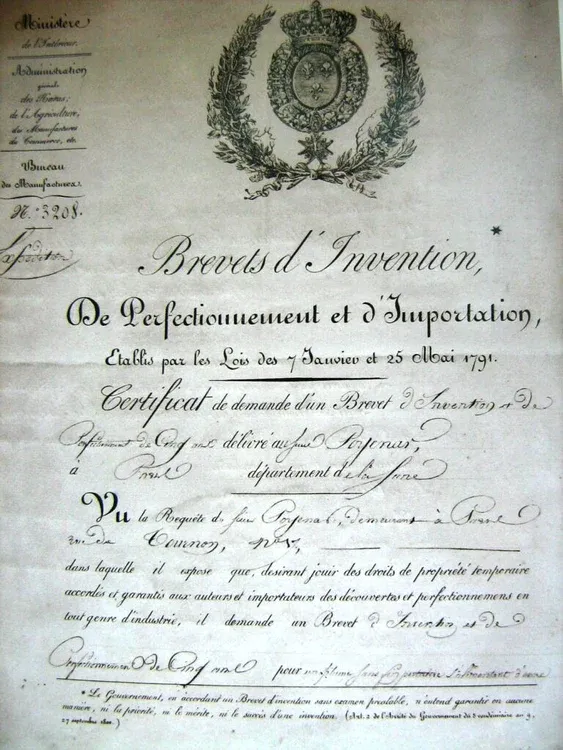 Ministère
de l'Intérieur.
Administration
générale
des Haras,
de l'Agriculture,
des Manufactures
du Commerce, etc.
Bureau
des Manufactures.
N.° 3208.
Expédition
*
Brevets d'Invention,
De Perfectionnement et d'Importation,
Etablis par les Lois des 7 Janvier et 25 Mai 1791.
Certificat de demande d'un Brevet d'Invention et de
Perfectionnement de Cinq ans délivré au Sieur
à département de la Seine
Vu la Requête du Sieur demeurant à
rue de Tournon,
dans laquelle il expose que, desirant jouir des droits de propriété temporaire
accordés et garantis aux auteurs et importateurs des découvertes et perfectionnemens en
tout genre d'industrie, il demande un Brevet d'Invention et de
Perfectionnement de Cinq ans pour
* Le Gouvernement, en accordant un Brevet d'invention sans examen préalable, n'entend garantir en aucune
manière, ni la priorité, ni le mérite, ni le succès d'une invention. (Art. 2 de l'Arrêté du Gouvernement du 5 vendémiaire an 9,
27 septembre 1800.)